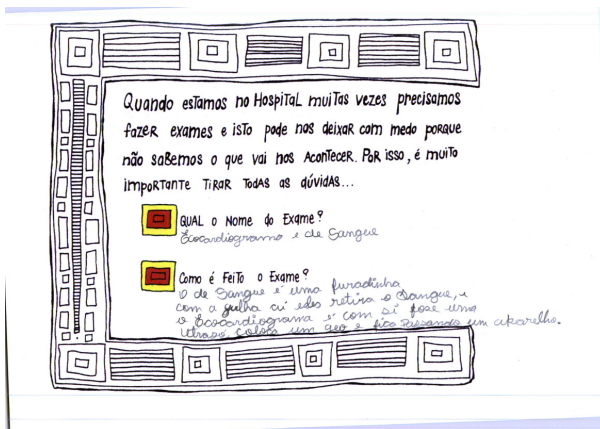 Quando estamos no Hospital muitas vezes precisamos
fazer exames e isto pode nos deixar com medo porque
não sabemos o que vai nos acontecer. Por isso, é muito
importante tirar todas as dúvidas...
Qual o Nome do Exame?
Ecocardiograma e de Sangue
Como é Feito o Exame?
O de Sangue é uma furadinha
com a gulha ai eles retira o Sangue, e
o Ecocardiograma é com si fose uma
utraso coloca um geo e fica passando um akarelho.